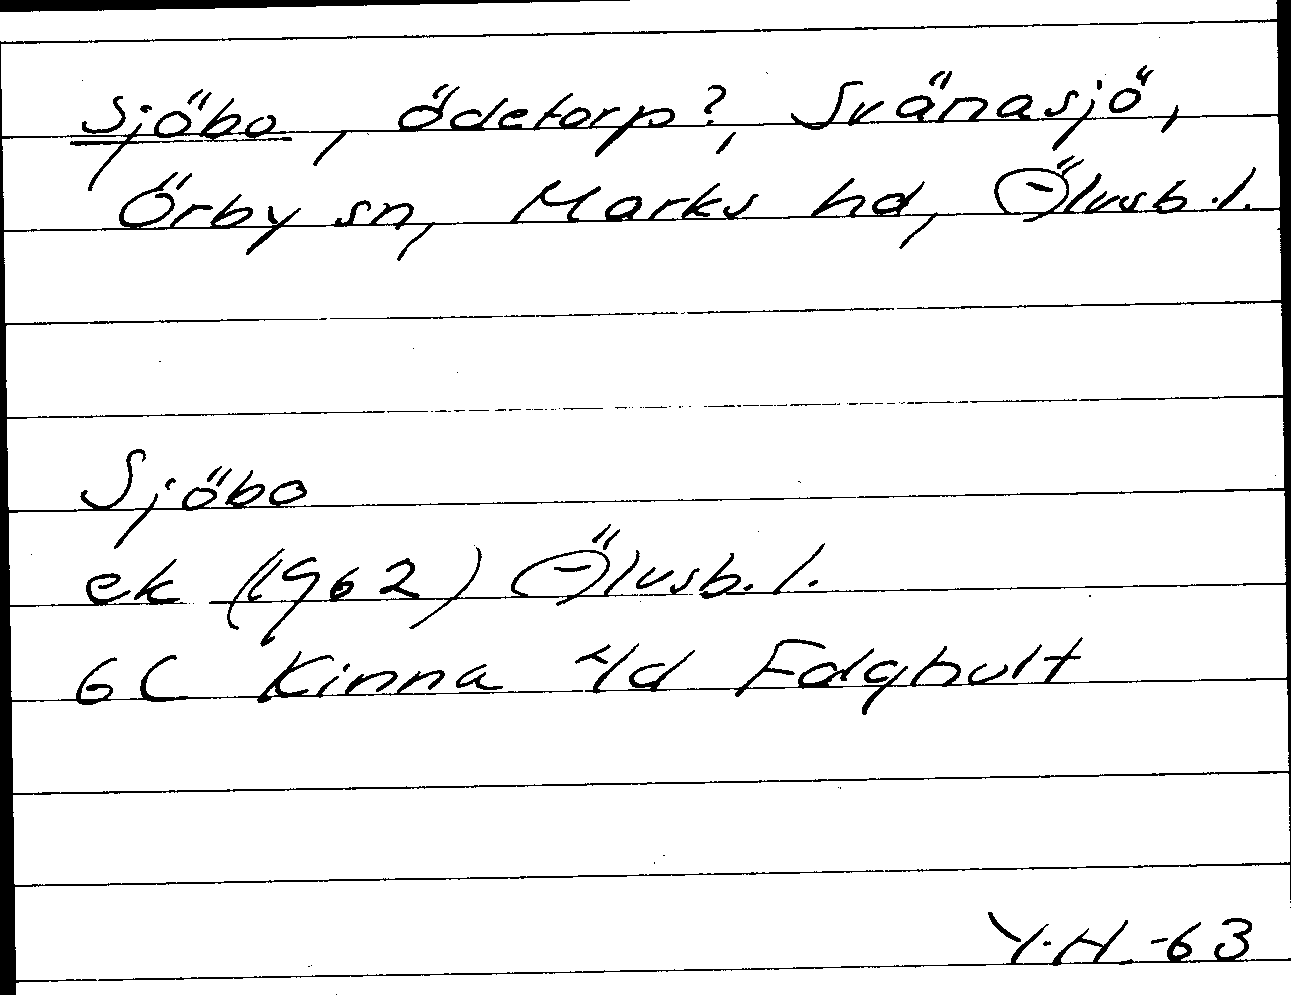 Sjöbo, ödetorp?, Svänasjö,
Örby sn, Marks hd, Älvsb. l.
Sjöbo
ek (1962) Älvsb. l.
6C Kinna d Faghult
Y.H. -63